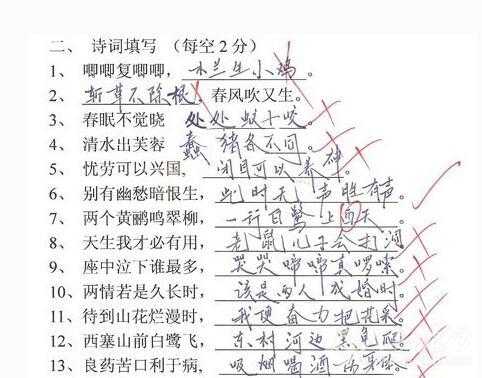 二、诗词填写（每空2分）
1、唧唧复唧唧，木兰生小鸡。
2、斩草不除根，春风吹又生。
3、春眠不觉晓 处处蚊子咬。
4、清水出芙蓉 蠢猪各不同。
5、忧劳可以兴国，闭目可以养神。
6、别有幽愁暗恨生，此时无声胜有声。
7、两个黄鹂鸣翠柳，一行白鹭上西天。
8、天生我才必有用，老鼠儿子会打洞
9、座中泣下谁最多，哭哭啼啼真啰嗦。
10、两情若是久长时，该是两人成婚时。
11、待到山花烂漫时，我便奋力把花采。
12、西塞山前白鹭飞，东村河边黑龟爬。
13、良药苦口利于病，吸烟喝酒